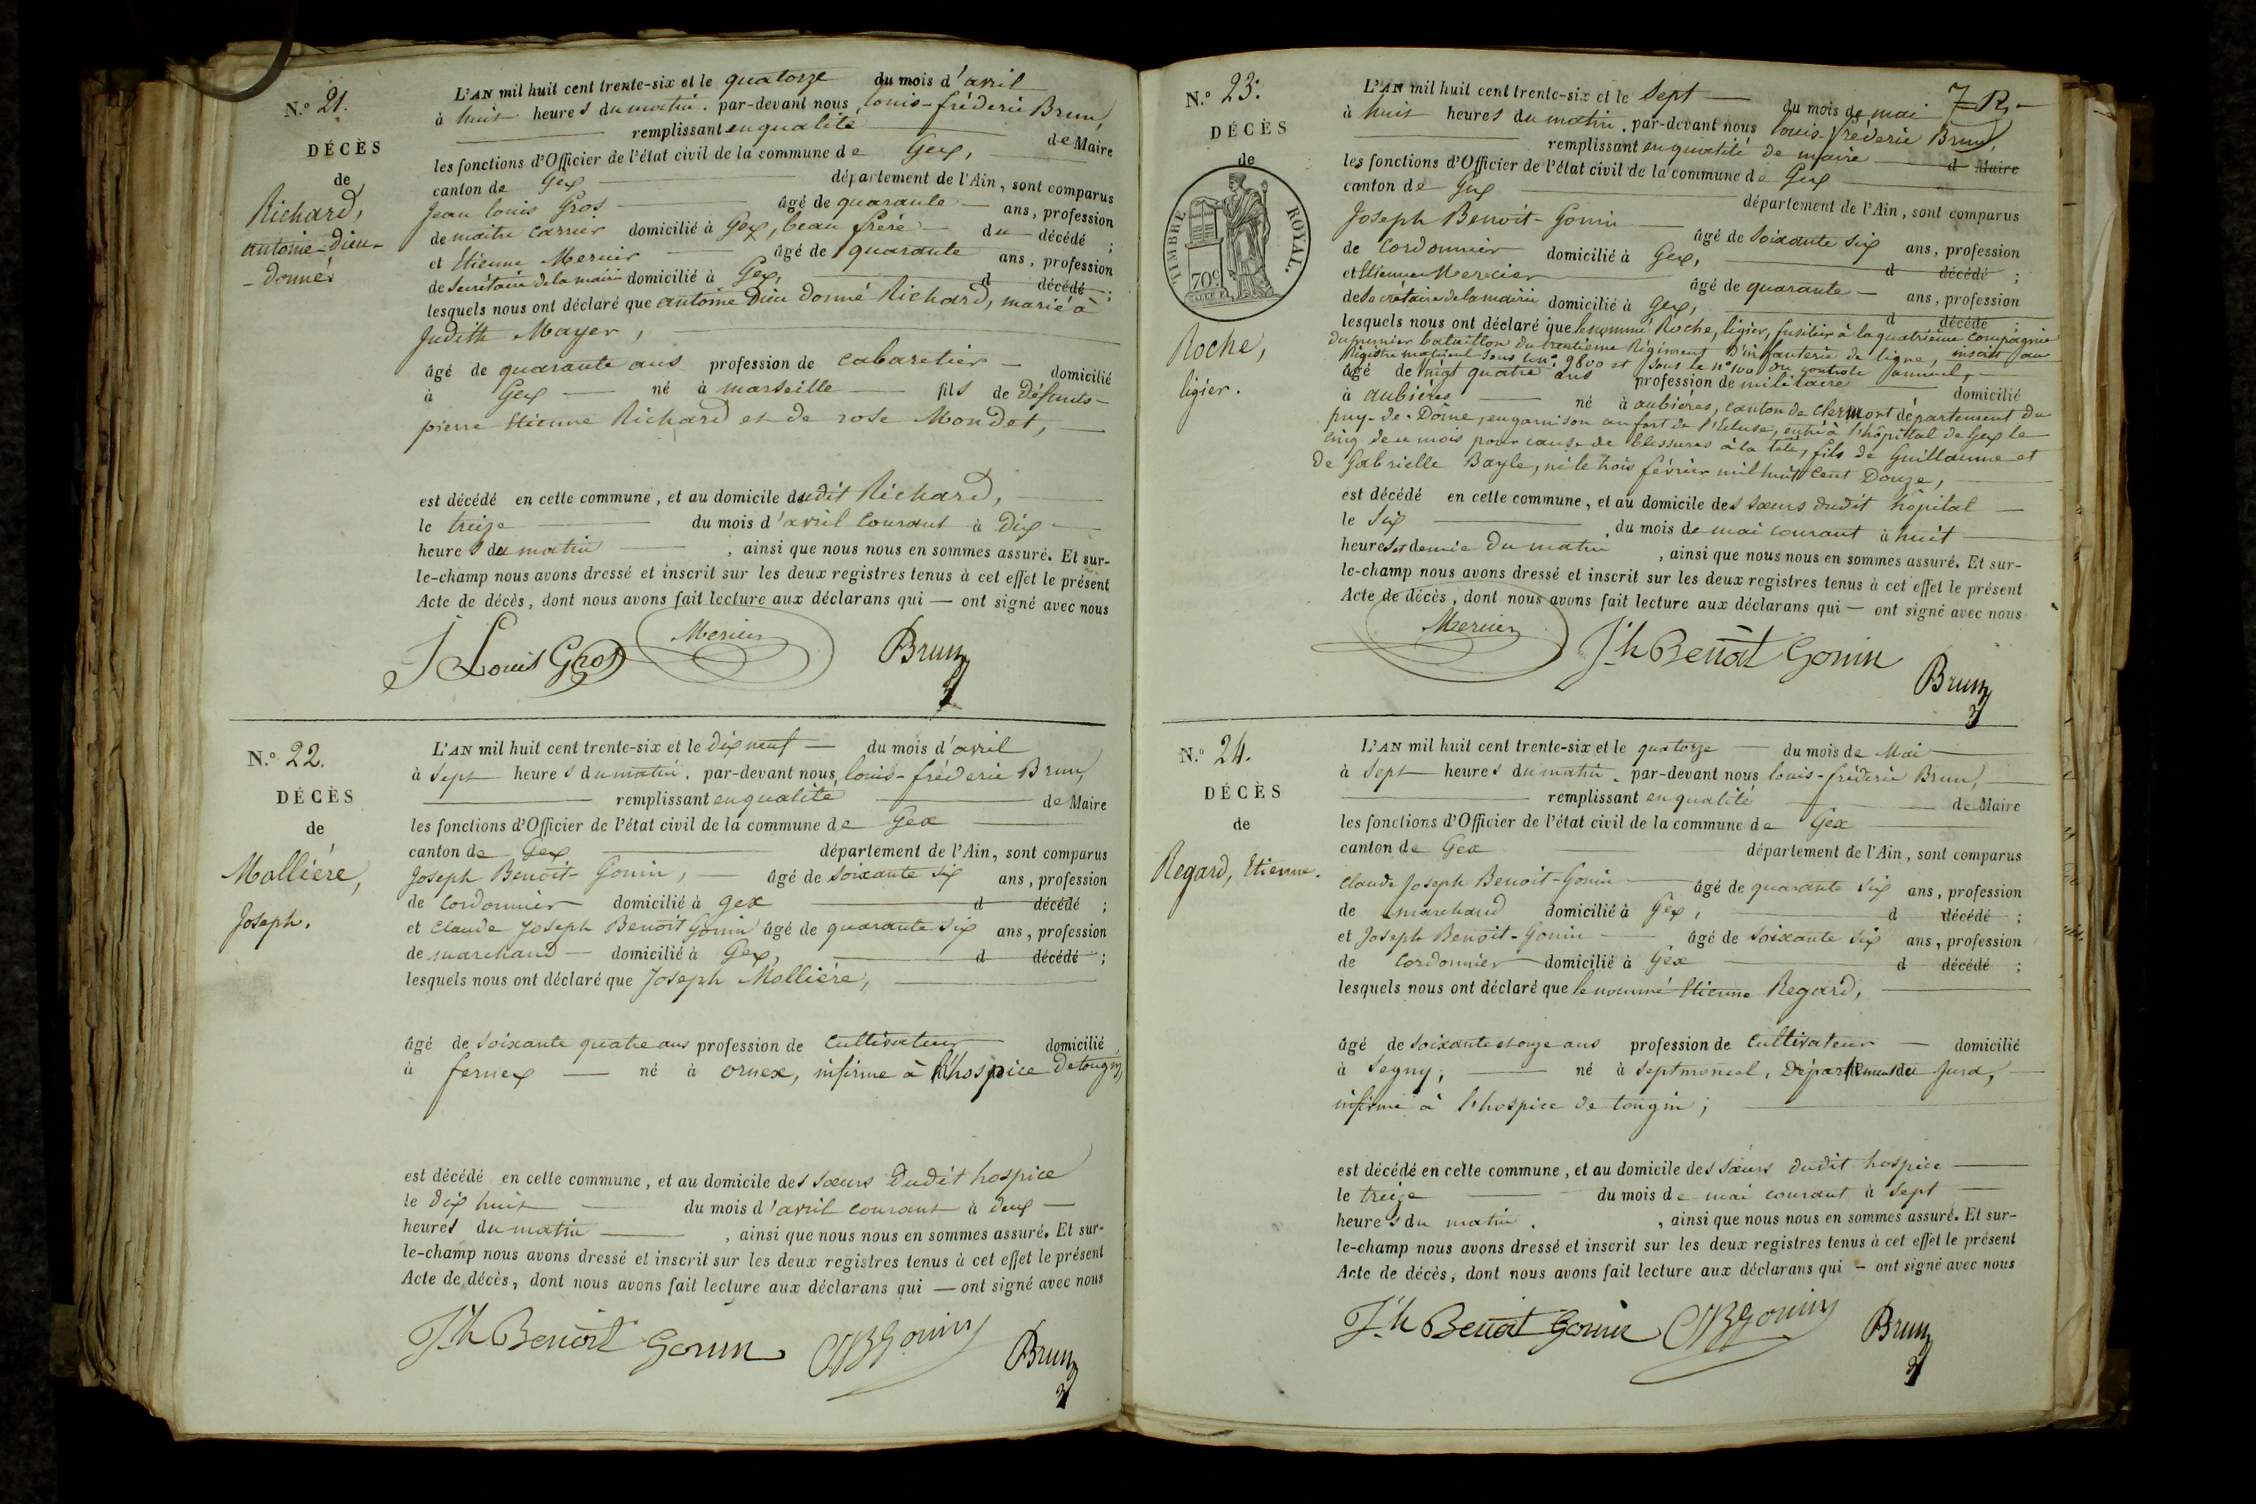 N.° 21.
DÉCÈS
de
Richard,
antoine-Dieu-
-donné
L'AN mil huit cent trente-six et le quatorze du mois d'avril
à huit heures du matin. par-devant nous louis-fréderic Brun,
remplissant en qualité de Maire
les fonctions d'Officier de l'état civil de la commune de Gex,
canton de Gex département de l'Ain, sont comparus
Jean louis Gros âgé de quarante ans, profession
de maitre carrier domicilié à Gex, beau frère du décédé ;
et Etienne Mercier âgé de quarante ans, profession
de Secrétaire de la mairie domicilié à Gex, d décédé ;
lesquels nous ont déclaré que antoine Dieu donné Richard, marié à
Judith Mayer,
âgé de quarante ans profession de cabaretier domicilié
à Gex né à marseille fils de Défunts
pierre Etienne Richard et de rose Mondet,
est décédé en cette commune, et au domicile dudit Richard,
le treize du mois d'avril courant à Dix
heures du matin , ainsi que nous nous en sommes assuré. Et sur-
le-champ nous avons dressé et inscrit sur les deux registres tenus à cet effet le présent
Acte de décès, dont nous avons fait lecture aux déclarans qui — ont signé avec nous
J Louis Gros Mercier Brun
N.° 22.
DÉCÈS
de
Molliére,
Joseph.
L'AN mil huit cent trente-six et le dix neuf du mois d'avril
à sept heures du matin. par-devant nous, louis-fréderic Brun,
remplissant en qualité de Maire
les fonctions d'Officier de l'état civil de la commune de Gex
canton de Gex département de l'Ain, sont comparus
Joseph Benoit-Gonin, âgé de soixante six ans, profession
de cordonnier domicilié à gex d décédé ;
et claude Joseph Benoit Gonin âgé de quarante six ans, profession
de marchand domicilié à Gex, d décédé ;
lesquels nous ont déclaré que Joseph Molliére,
âgé de soixante quatre ans profession de cultivateur domicilié
à fernex né à ornex, infirme à l'hospice de tougin,
est décédé en cette commune, et au domicile des sœurs dudit hospice
le dix huit du mois d'avril courant à deux
heures du matin , ainsi que nous nous en sommes assuré. Et sur-
le-champ nous avons dressé et inscrit sur les deux registres tenus à cet effet le présent
Acte de décès, dont nous avons fait lecture aux déclarans qui — ont signé avec nous
J.h Benoit Gonin CJBGonin Brun
7 R.
N.° 23.
DÉCÈS
de
TIMBRE ROYAL.
70c
Roche,
ligier.
L'AN mil huit cent trente-six et le sept du mois de mai
à huit heures du matin. par-devant nous louis-fréderic Brun,
remplissant en qualité de maire d Maire
les fonctions d'Officier de l'état civil de la commune de Gex
canton de Gex département de l'Ain, sont comparus
Joseph Benoit-Gonin âgé de soixante six ans, profession
de cordonnier domicilié à Gex, d décédé ;
et Etienne Mercier âgé de quarante ans, profession
de Secrétaire de la mairie domicilié à Gex, d décédé ;
lesquels nous ont déclaré que le nommé Roche, ligier, fusilier à la quatrième compagnie
du premier bataillon du trentième Régiment d'infanterie de ligne, inscrit au
Registre matricule sous le n° 9800 et sous le n° 100 du controle annuel,
âgé de vingt quatre ans profession de militaire domicilié
à aubiéres né à aubiéres, canton de clermont département du
puy-de-Dôme, en garnison au fort de l'Ecluse, entré à l'hôpital de Gex le
cinq de ce mois pour cause de blessures à la tête, fils de Guillaume et
de Gabrielle Bayle, né le trois février mil huit cent Douze,
est décédé en cette commune, et au domicile des sœurs dudit hôpital
le six du mois de mai courant à huit
heures et demie du matin , ainsi que nous nous en sommes assuré. Et sur-
le-champ nous avons dressé et inscrit sur les deux registres tenus à cet effet le présent
Acte de décès, dont nous avons fait lecture aux déclarans qui — ont signé avec nous
Mercier J.h Benoit Gonin Brun
N.° 24.
DÉCÈS
de
Regard, Etienne.
L'AN mil huit cent trente-six et le quatorze du mois de Mai
à sept heures du matin. par-devant nous louis-fréderic Brun,
remplissant en qualité de Maire
les fonctions d'Officier de l'état civil de la commune de Gex
canton de Gex département de l'Ain, sont comparus
claude Joseph Benoit-Gonin âgé de quarante six ans, profession
de marchand domicilié à Gex, d décédé ;
et Joseph Benoit-Gonin âgé de soixante six ans, profession
de cordonnier domicilié à Gex d décédé ;
lesquels nous ont déclaré que le nommé Etienne Regard,
âgé de soixante et onze ans profession de cultivateur domicilié
à Segny, né à Septmoncel, Département du Jura,
infirme à l'hospice de tougin ;
est décédé en cette commune, et au domicile des sœurs dudit hospice
le treize du mois de mai courant à sept
heures du matin. , ainsi que nous nous en sommes assuré. Et sur-
le-champ nous avons dressé et inscrit sur les deux registres tenus à cet effet le présent
Acte de décès, dont nous avons fait lecture aux déclarans qui – ont signé avec nous
J.h Benoit Gonin CJBGonin Brun